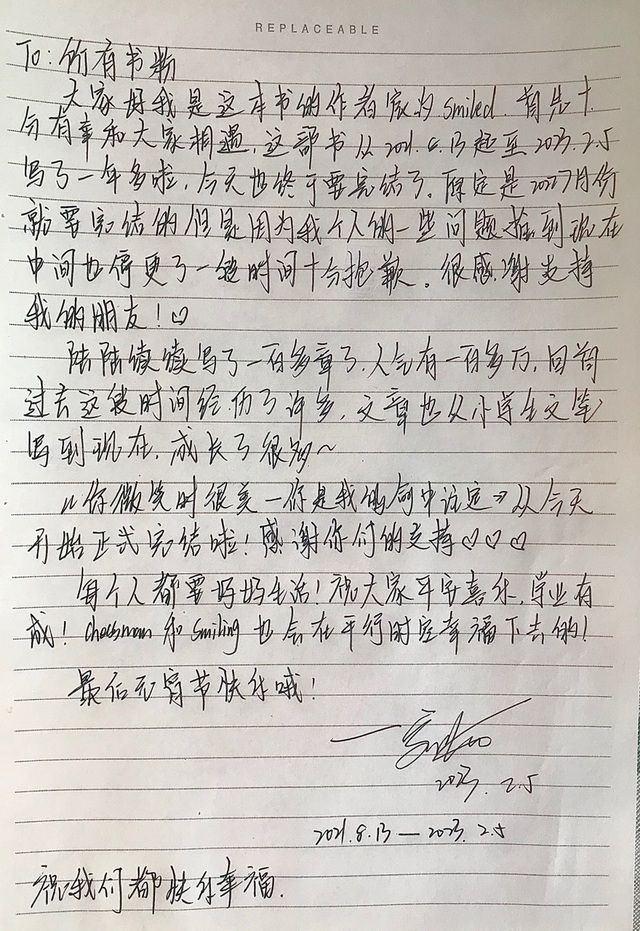 REPLACEABLE
To：所有书粉
大家好我是这本书的作者宸汐smiled.首先十
分有幸和大家相遇，这部书从2021.8.13起至2023.2.5
写了一年多啦，今天也终于要完结了。原定是2022 7月份
就要完结的但是因为我个人的一些问题拖到现在
中间也停更了一段时间十分抱歉。很感谢支持
我的朋友！♡
陆陆续续写了一百多章了，人气有一百多万，回首
过去这段时间经历了许多，文章也从小学生文笔
写到现在，成长了很多~
《你微笑时很美—你是我的命中注定》从今天
开始正式完结啦！感谢你们的支持♡♡♡
每个人都要好好生活！祝大家平安喜乐，学业有
成！Chessman和Smiling也会在平行时空幸福下去的！
最后元宵节快乐哦！
2023.2.5
2021.8.13—2023.2.5
祝我们都快乐幸福.